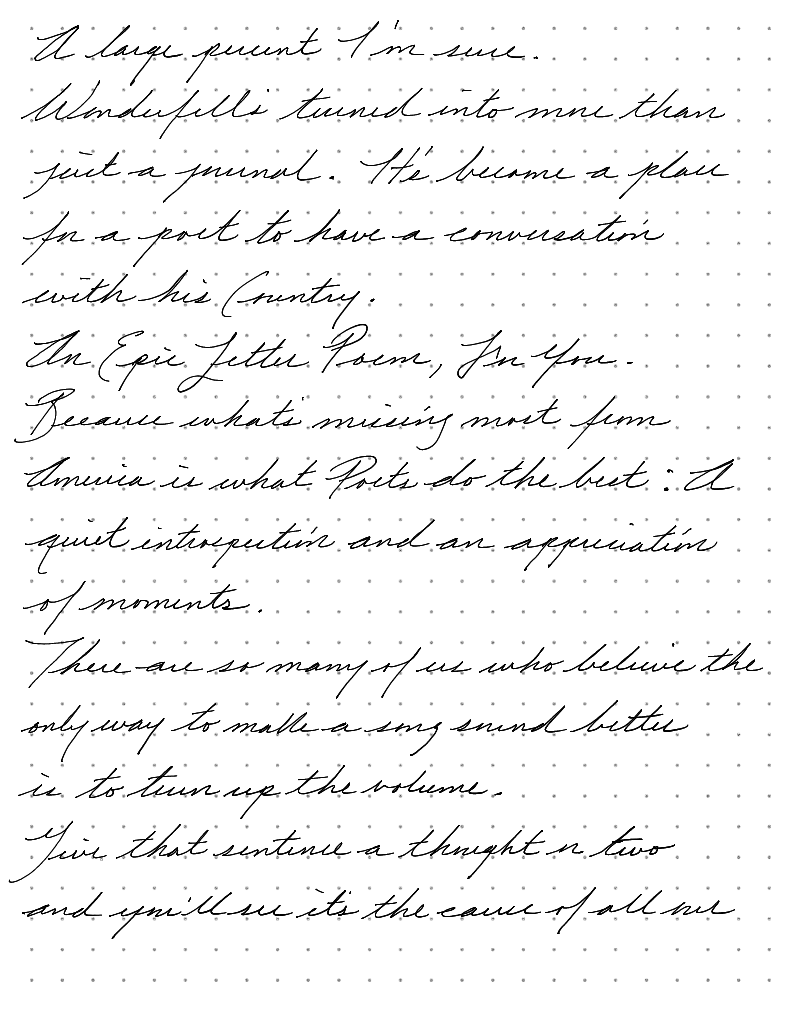 A large percent I'm sure.
Wonderfell's turned into more than
just a journal. It's become a place
for a poet to have a conversation
with his Country.
An Epic Letter Poem, For You.
Because what's missing most from
America is what Poets do the best : A
quiet introspection and an appreciation
of moments.
There are so many of us who believe the
only way to make a song sound better
is to turn up the volume.
Give that sentence a thought or two
and you'll see it's the cause of all our